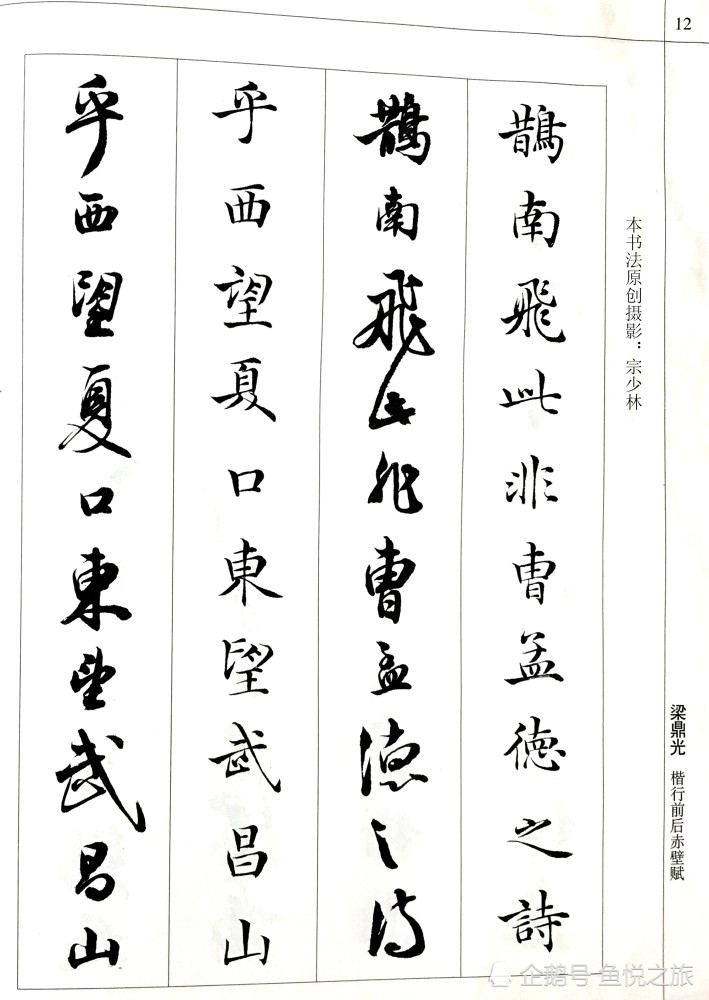 12
本书法原创摄影：宗少林
梁鼎光 楷行前后赤壁赋
鵲南飛此非曹孟德之詩
鵲南飛此非曹孟德之詩
乎西望夏口東望武昌山
乎西望夏口東望武昌山
企鹅号 鱼悦之旅